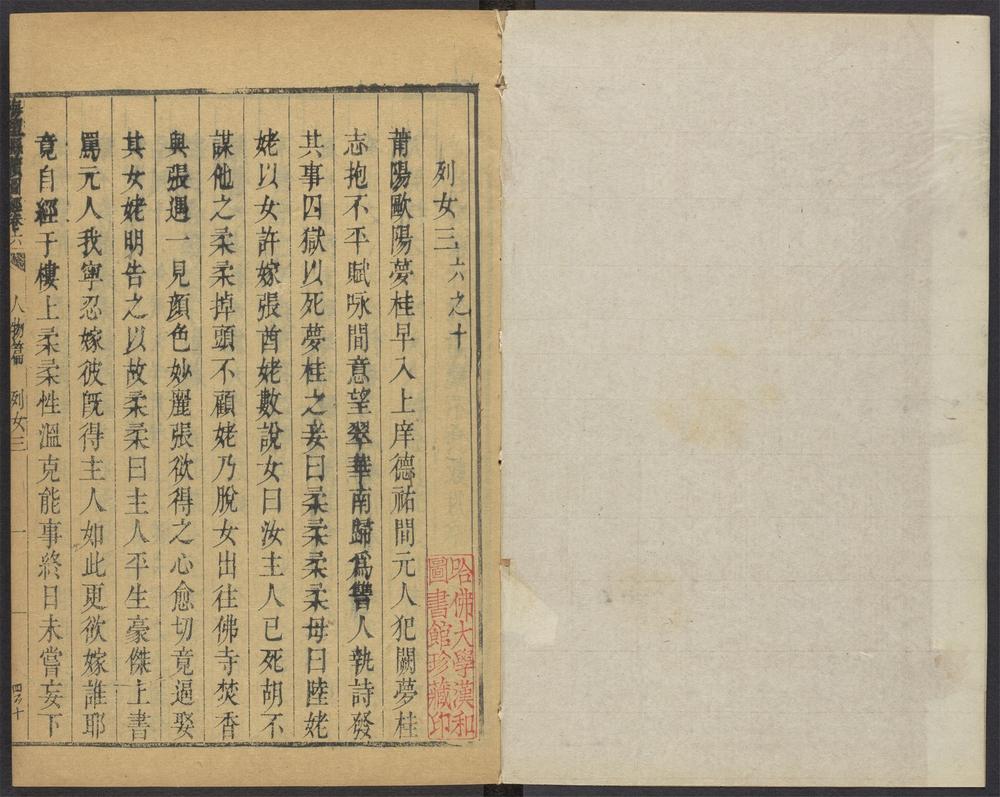 列女三 六之十
莆陽歐陽夢桂早入上庠德祐間元人犯闕夢桂
志抱不平賦咏間意望翠華南歸爲讐人執詩發
其事囚獄以死夢桂之妾曰柔柔柔柔母曰陸姥
姥以女許嫁張酋姥數說女曰汝主人已死胡不
謀他之柔柔掉頭不顧姥乃脫女出往佛寺焚香
與張遇一見顔色妙麗張欲得之心愈切竟逼娶
其女姥明告之以故柔柔曰主人平生豪傑上書
罵元人我寧忍嫁彼旣得主人如此更欲嫁誰耶
竟自經于樓上柔柔性溫克能事終日未嘗妄下
圖經卷六 人物篇 列女三 一
哈佛大學漢和
圖書館珍藏印